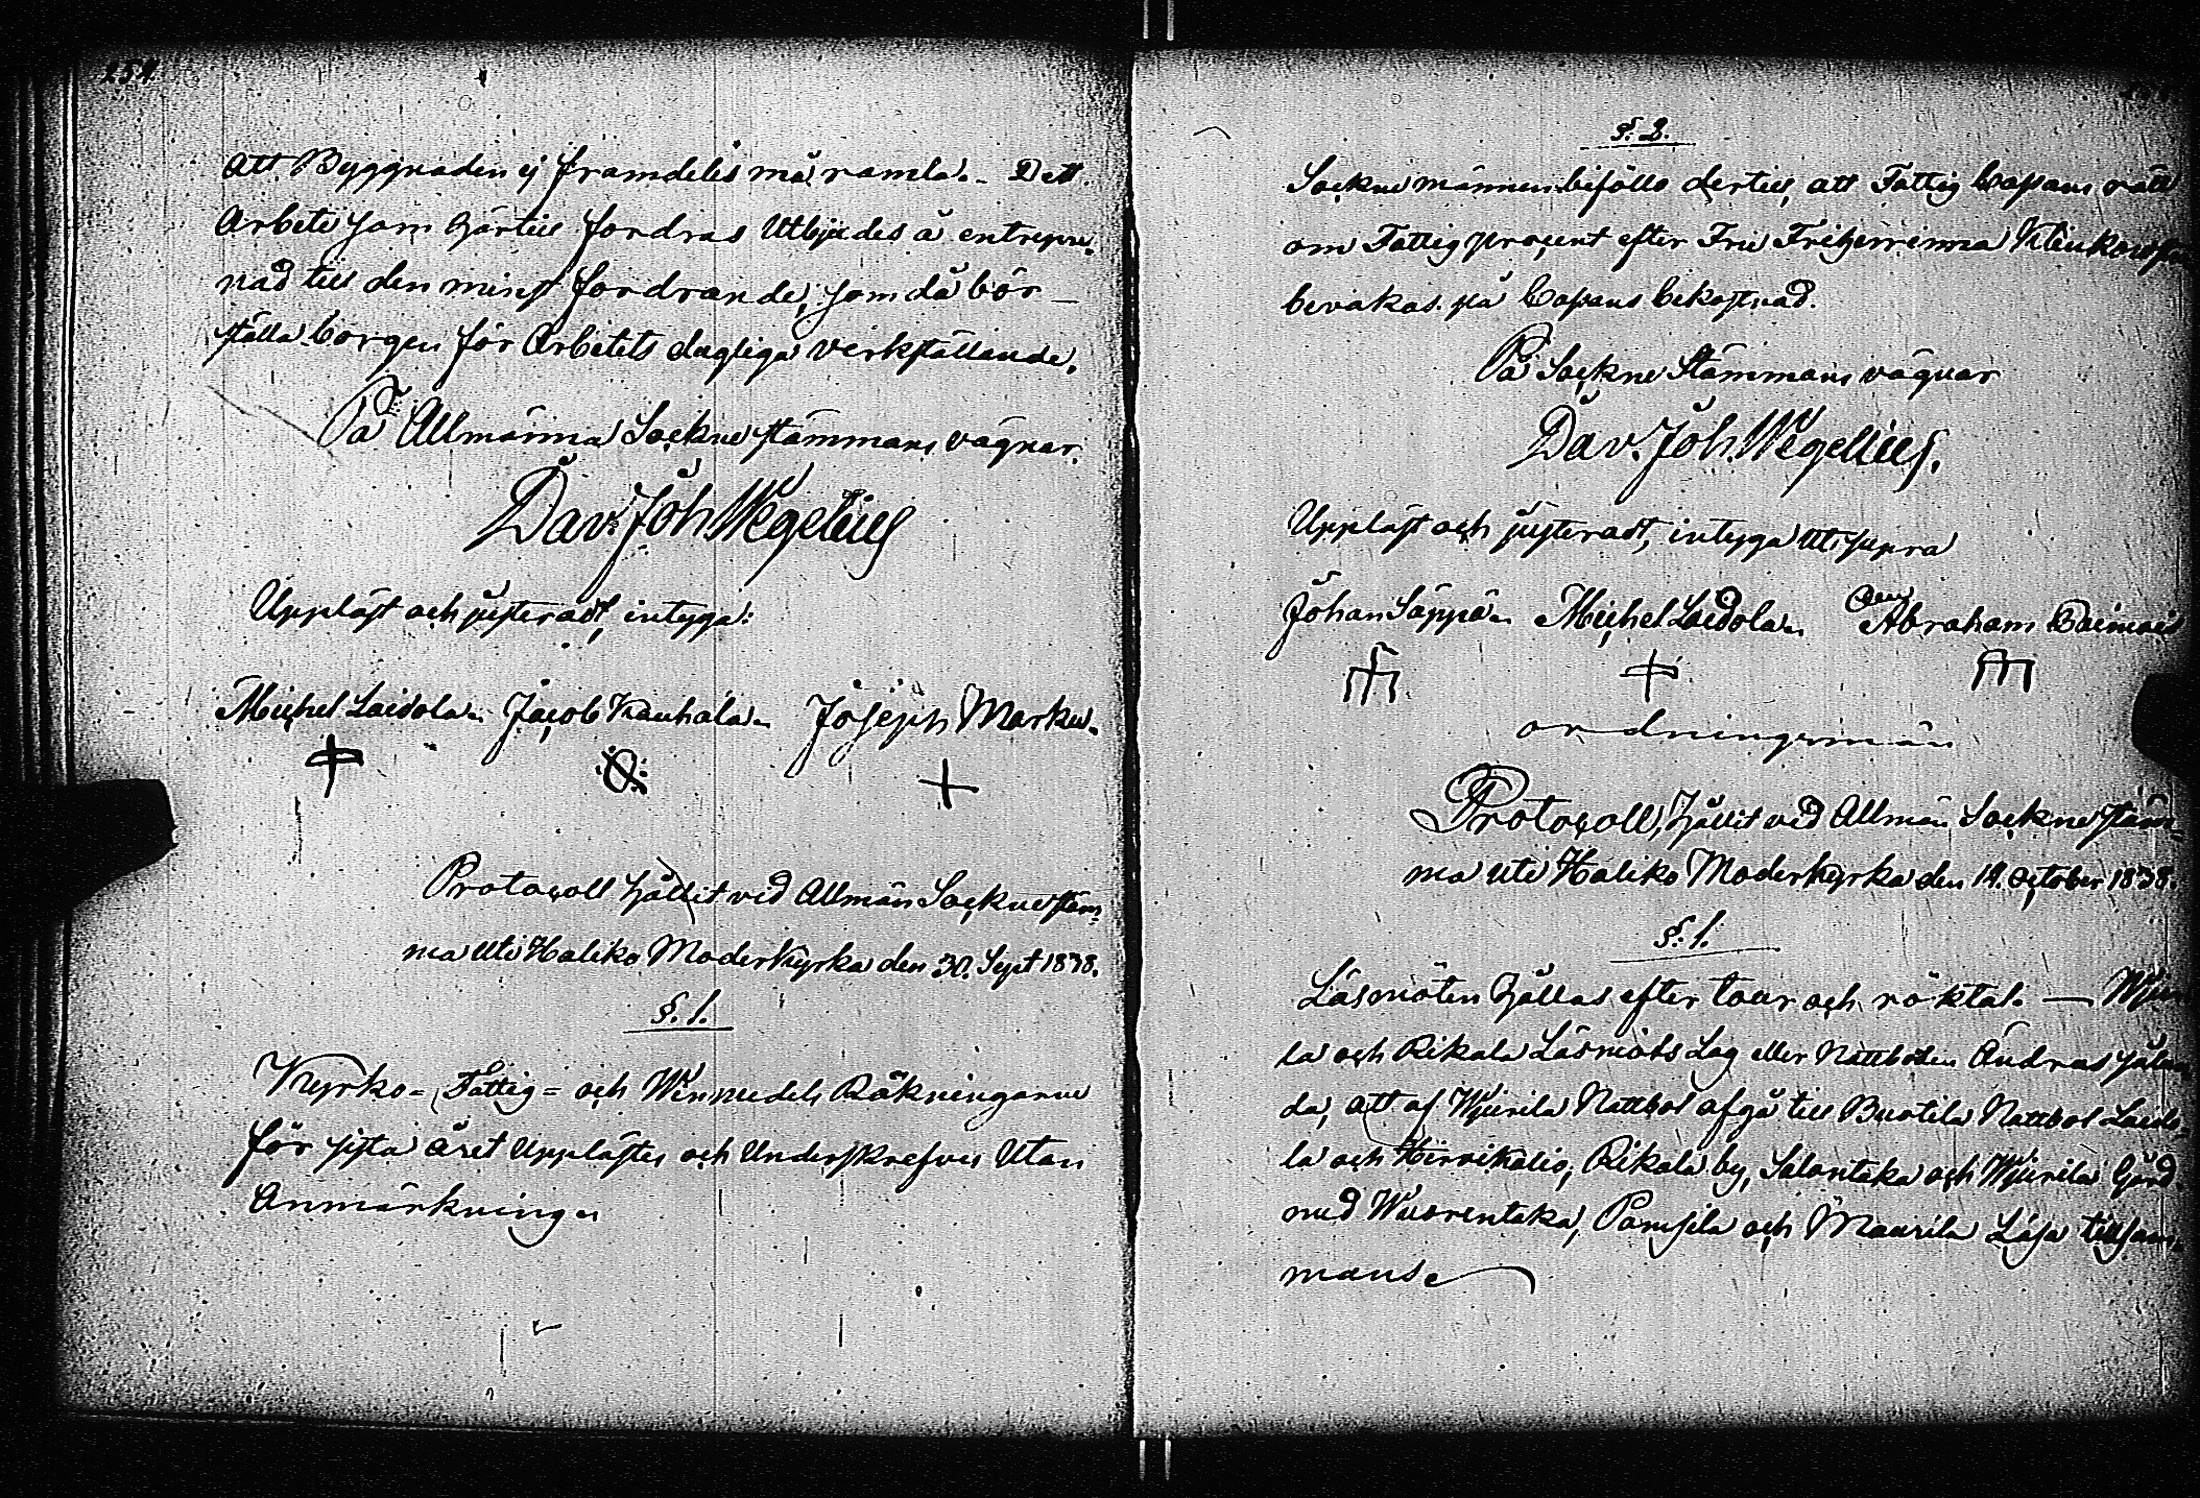 254
att Byggnaden ej framdeles må ramla. - Dett
Arbete som härtill fordras utbjudes å entrepre-
nad till den minst fordrande, som då bör
ställa borgen för Arbetets dugliga verkställande.
På Allmänna Sockne stämmans vägnar.
Dav. Joh. Wegelius
Uppläst och justeradt, intyga:
Michel Laidola. Jacob Kauhala. Joseph Marku.
Protocoll hållit vid Allmän Sockne stäm-
ma uti Haliko Moderkyrka den 30. Sept 1838.
§. 1.
Kyrko- Fattig- och Winmedels Räkningarne
för sista året upplästes och underskrefves utan
Anmärkning.
§. 2.
Socknemännen biföllo dertill, att Fattig Cassans rätt
om Fattigprocent efter Fru Friherrinna
bevakas på Cassans bekostnad.
På Sockne Stämmans vägnar
Dav. Joh. Wegelius.
Uppläst och justeradt, intyga ut supra
Johan Säppä. Michel Laidola. Abraham
ordningsmän
Protocoll, hållit vid Allmän Sockne stäm-
ma uti Haliko Moderkyrka den 19. October 1838.
§. 1.
Läsmöten hållas efter tour och röktal. —
la och Rikala Läsmöts Lag eller Nattbolen Ändras sålun
da, att af Wiurila Nattbol afgå till Buotila Nattbol Laido-
la och Hirvikalio, Rikala by, Salontaka och Wiurila Gård
med Wuorentaka, Pamsila och Maurila Läsa tillsam-
mans.